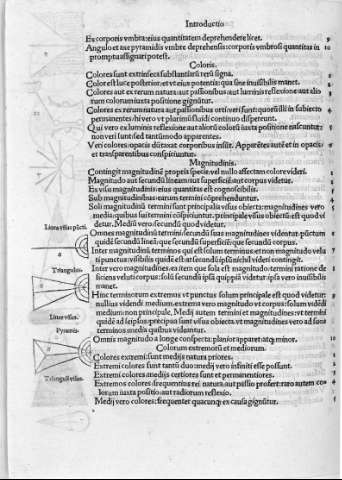 Introductio
Ex corporis vmbra: eius quantitatem deprehendere licet. 9
Angulo et axe pyramidis vmbre deprehensis: corporis vmbrosi quantitas in 10
promptu assignari potest.
Coloris.
Colores sunt extrinseca substantiarum vera signa.
Color est luce posterior: et vt eius potentis: qua sine inuisibilis manet.
Colores aut ex rerum natura aut passionibus aut luminis reflexione aut alio
rum colorum iuxta positione gignuntur.
Colores ex rerum natura aut passionibus orti veri sunt: quoniam illi in subiecto
permanentes: hi vero vt plurimum fluidi continuo dispereunt.
Qui vero ex luminis reflexione aut aliorum colorum iuxta positione nascuntur:
non veri sunt sed tantummodo apparentes.
Veri colores: opacis duntaxat corporibus insunt. Apparentes autem et in opacis
et transparentibus conspiciuntur.
Magnitudinis.
Contingit magnitudinem propria specie: vel nullo affectam colore videri.
Magnitudo aut secundum lineam aut superficiem aut corpus videtur.
Ex visu magnitudinis: eius quantitas est cognoscibilis.
Sub magnitudinibus: earum termini comprehenduntur.
Soli magnitudinum termini sunt principalia visus obiecta: magnitudines vero
media: quibus sui termini conspiciuntur. principale visus obiectum est quod vi
detur. Medium vero secundum quod videtur.
Omnes magnitudines: termini secundum suas magnitudines videntur. punctum
quidem secundum lineam: que secundum superficiem: que secundum corpus.
Inter magnitudinum terminos qui est solum terminus: et non magnitudo velu
ti punctus visibilis quidem est: at secundum ipsum nichil videri contingit.
Inter vero magnitudines: ea item que sola est magnitudo: termini ratione de
ficiens veluti corpus: soli secundum ipsa quippiam videtur: ipsa vero inuisibilis
manet.
Hinc terminorum extremus vt punctus: solum principale est quod videtur:
nullius videndi medium. extrema vero magnitudo vt corpus: solum videndi
medium: non principale. Medij autem termini et magnitudines: vt termini
quidem ad se ipsos: principia sunt visus obiecta. vt magnitudines vero ad suos
terminos: media quibus videantur.
Omnis magnitudo a longe conspecta: planior apparet atque minor.
Colorum extremorum et mediorum.
Colores extremi: sunt medijs natura priores.
Extremi colores sunt tantum duo: medij vero infiniti esse possunt.
Extremi colores: medijs certiores sunt et permanentiores.
Extremos colores frequentius rei natura aut passio profert: raro autem co
lorum iuxta positio: aut radiorum reflexio.
Medij vero colores: frequenter quacunque ex causa gignuntur.
Linea visus puncti.
Triangulus.
Linee visus.
Pyramis.
Trianguli visus.